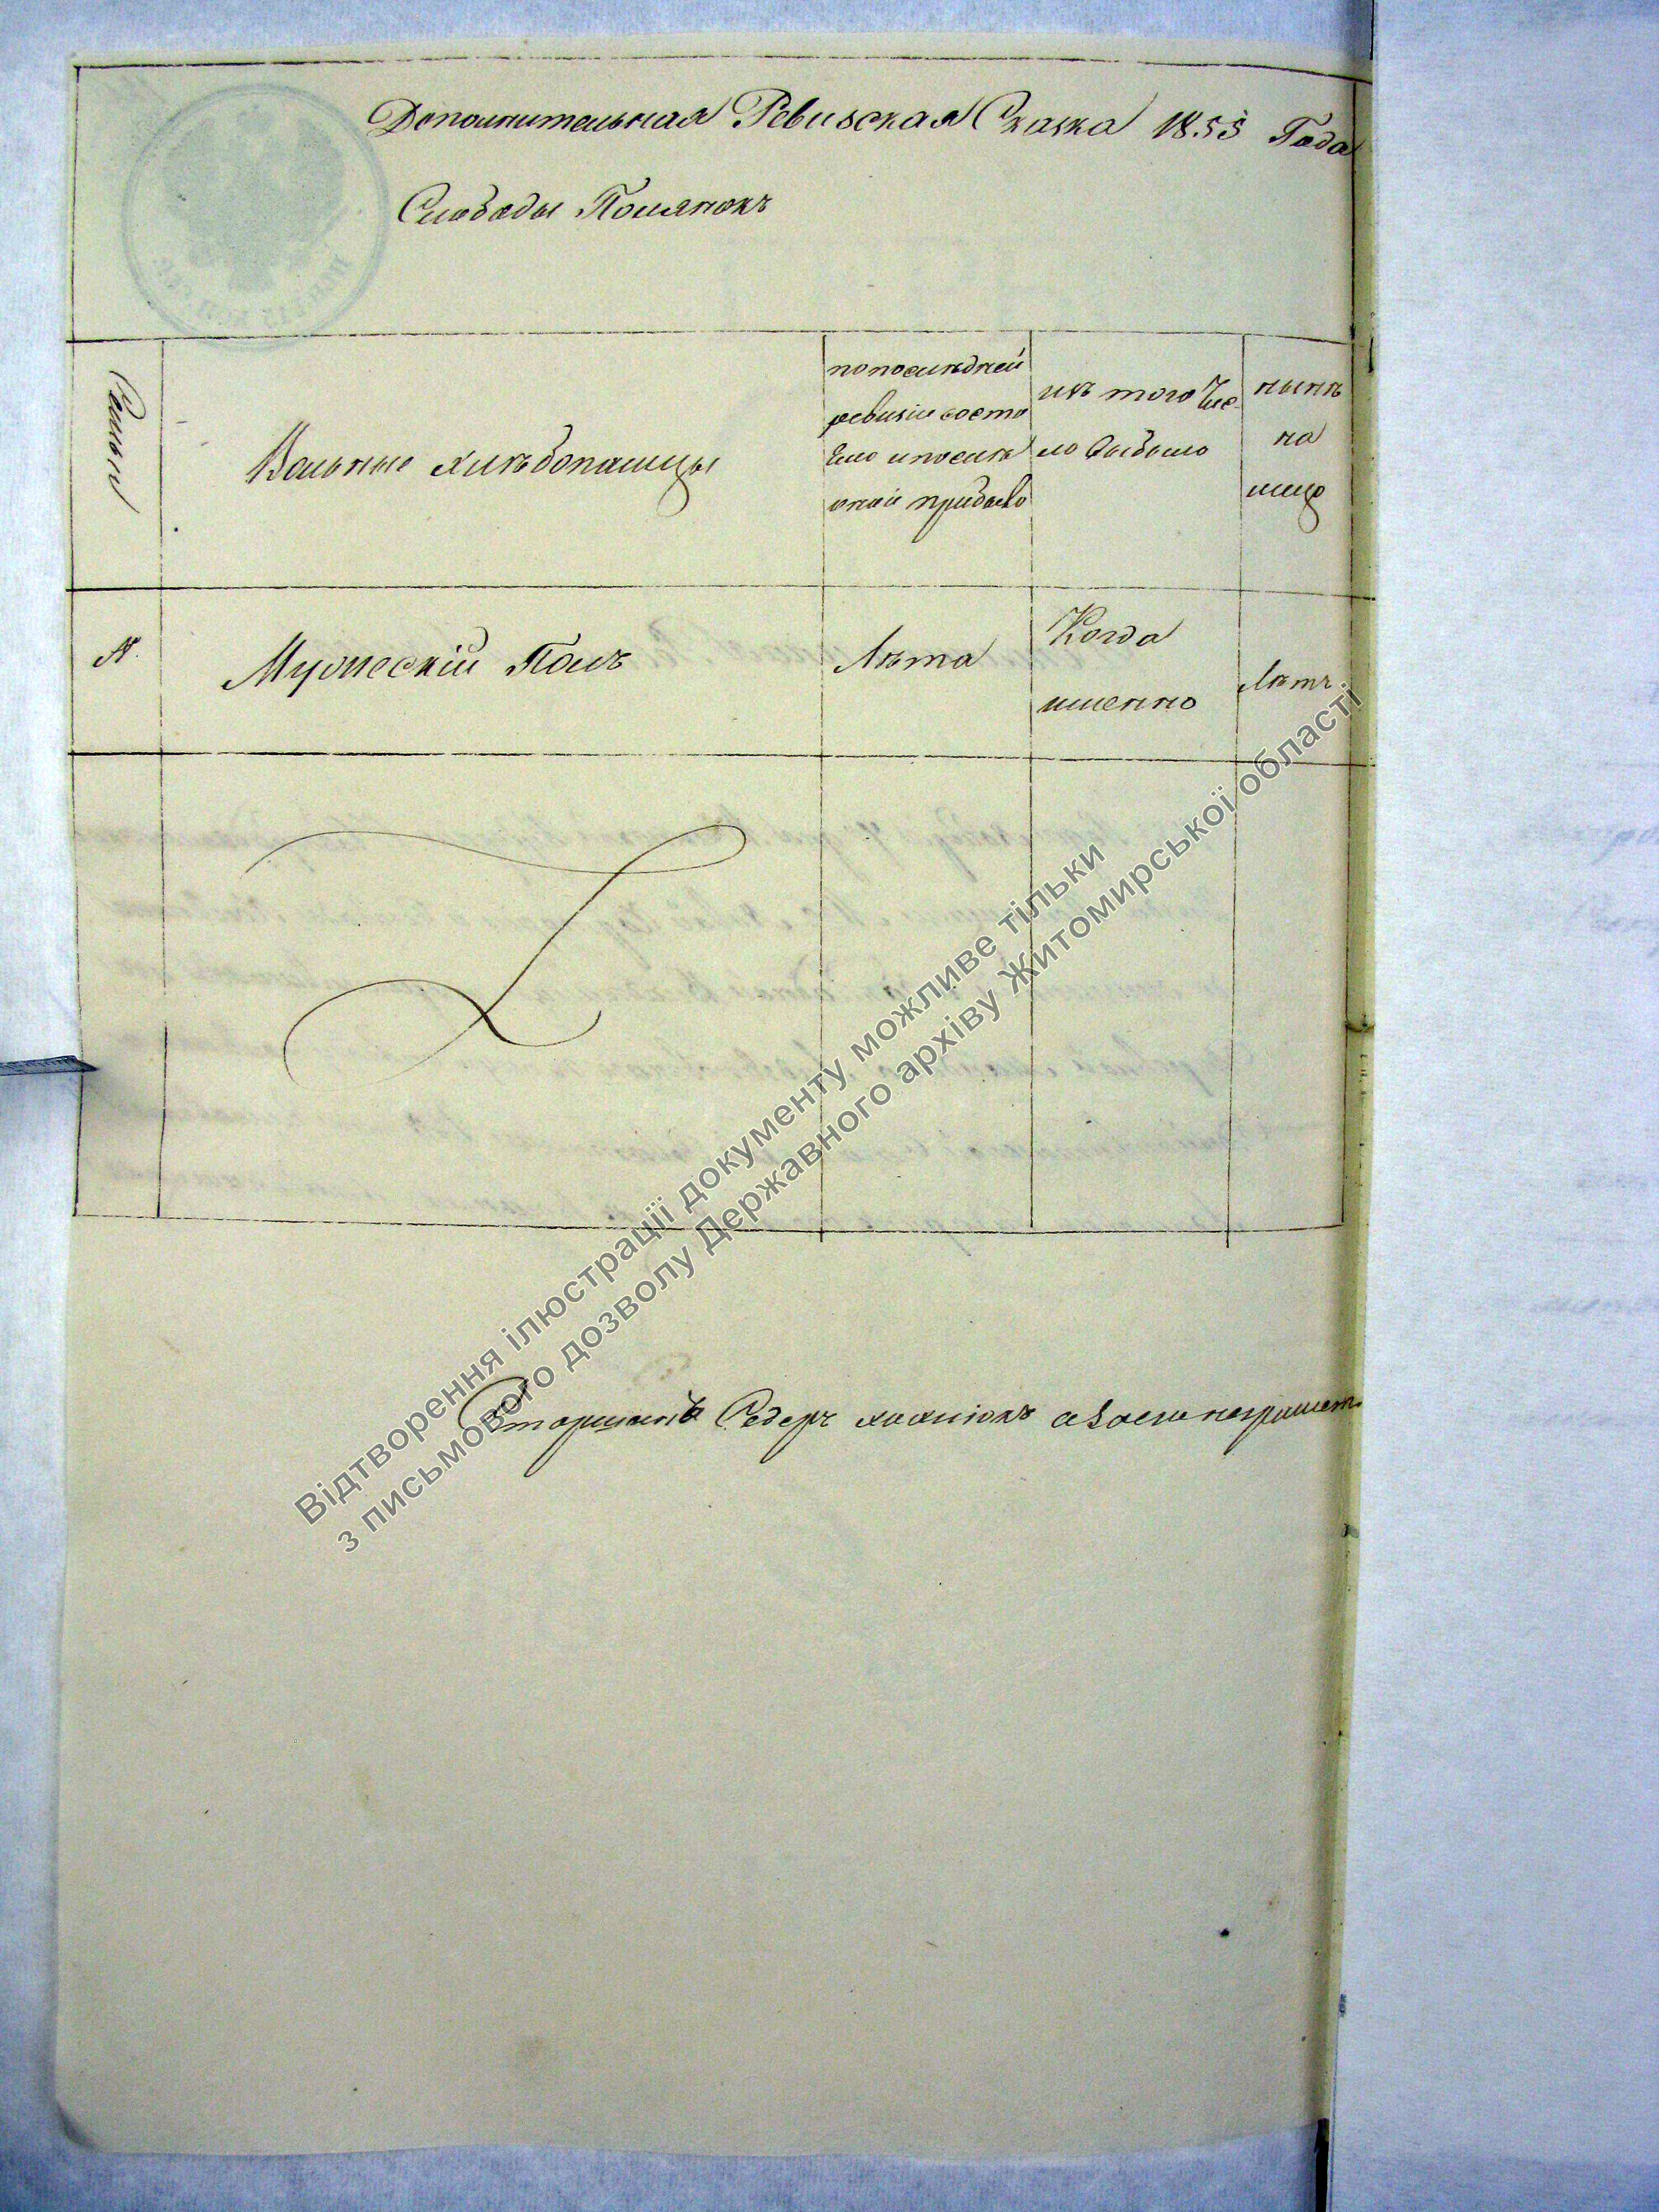 Дополнительная Ревизская Сказка 1855 Года
Слободы Полянокъ
Семьи
Вольные хлѣбопашцы
попослѣдней
ревизіи состо
яло ипослѣ
оной прибыло
изъ того Чис-
ло выбыло
нынѣ
на
лицо
№
Мужескій Полъ
Лѣта
Когда
именно
Лѣтъ
Відтворення ілюстрації документу можливе тільки
з письмового дозволу Державного архіву Житомирської області
Федеръ